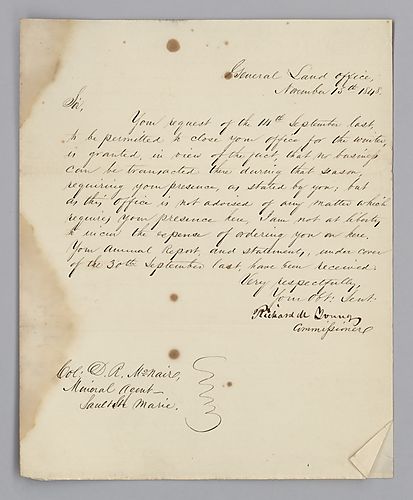 General Land Office,
November 15th 1848.
Sir,
Your request of the 14th September last,
to be permitted to close your office for the winter,
is granted, in view of the fact, that no business
can be transacted there during that season,
requiring your presence, as stated by you; but
as this office is not advised of any matter which
requires your presence here, I am not at liberty
to incur the expense of ordering you on here.
Your Annual Report, and statements, under cover
of the 30th September last, have been received.
Very respectfully,
Your Obt. Servt.
Richard M Young
Commissioner
Col: D. R. McNair,
Mineral Agent
Sault Ste Marie.